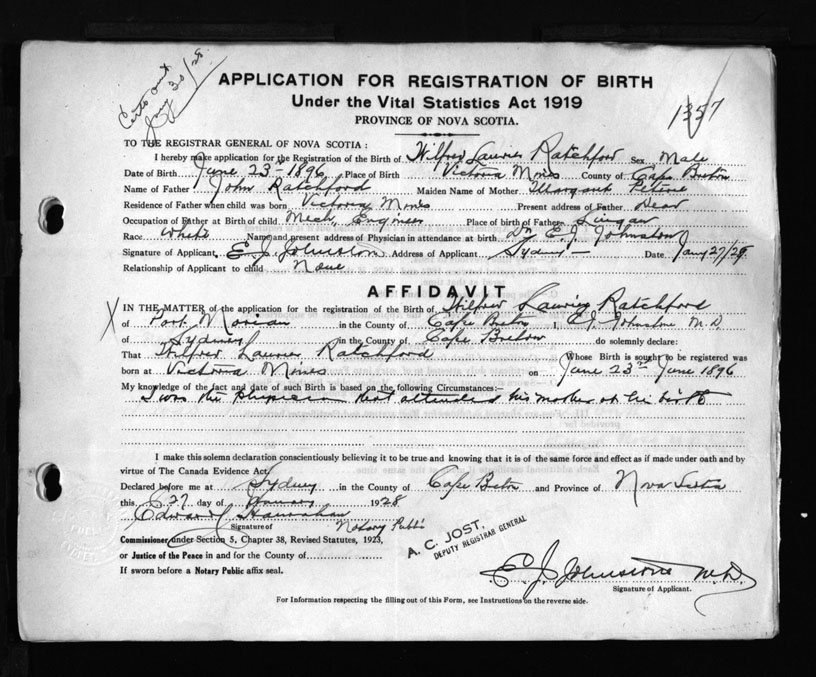 Certs sent
Jany 30/28.
APPLICATION FOR REGISTRATION OF BIRTH
Under the Vital Statistics Act 1919
1357
PROVINCE OF NOVA SCOTIA.
TO THE REGISTRAR GENERAL OF NOVA SCOTIA :
I hereby make application for the Registration of the Birth of Wilfred Laurier Ratchford Sex Male
Date of Birth June 23rd 1896 Place of Birth Victoria Mines County of Cape Breton
Name of Father John Ratchford Maiden Name of Mother Margaret Petrie
Residence of Father when child was born Victoria Mines Present address of Father Dead
Occupation of Father at Birth of child Mech. Engineer Place of birth of Father Lingan
Race White Name and present address of Physician in attendance at birth Dr E. J. Johnston
Signature of Applicant E J Johnston Address of Applicant Sydney Date Jany 27/28.
Relationship of Applicant to child None
AFFIDAVIT
X IN THE MATTER of the application for the registration of the Birth of Wilfred Laurier Ratchford
of Port Morian in the County of Cape Breton I, E J. Johnstone M.D
of Sydney in the County of Cape Breton do solemnly declare:
That Wilfred Laurier Ratchford Whose Birth is sought to be registered was
born at Victoria Mines on June 23rd June 1896
My knowledge of the fact and date of such Birth is based on the following Circumstances:—
I was the Physician that attended his mother at his birth
I make this solemn declaration conscientiously believing it to be true and knowing that it is of the same force and effect as if made under oath and by
virtue of The Canada Evidence Act.
Declared before me at Sydney in the County of Cape Breton and Province of Nova Scotia
this 27 day of January 1928
Edward Hanrahan
Signature of Notary Public
Commissioner under Section 5, Chapter 38, Revised Statutes, 1923,
or Justice of the Peace in and for the County of
If sworn before a Notary Public affix seal.
A. C. JOST,
DEPUTY REGISTRAR GENERAL
E. J. Johnstone M.D.
Signature of Applicant.
For Information respecting the filling out of this Form, see Instructions on the reverse side.